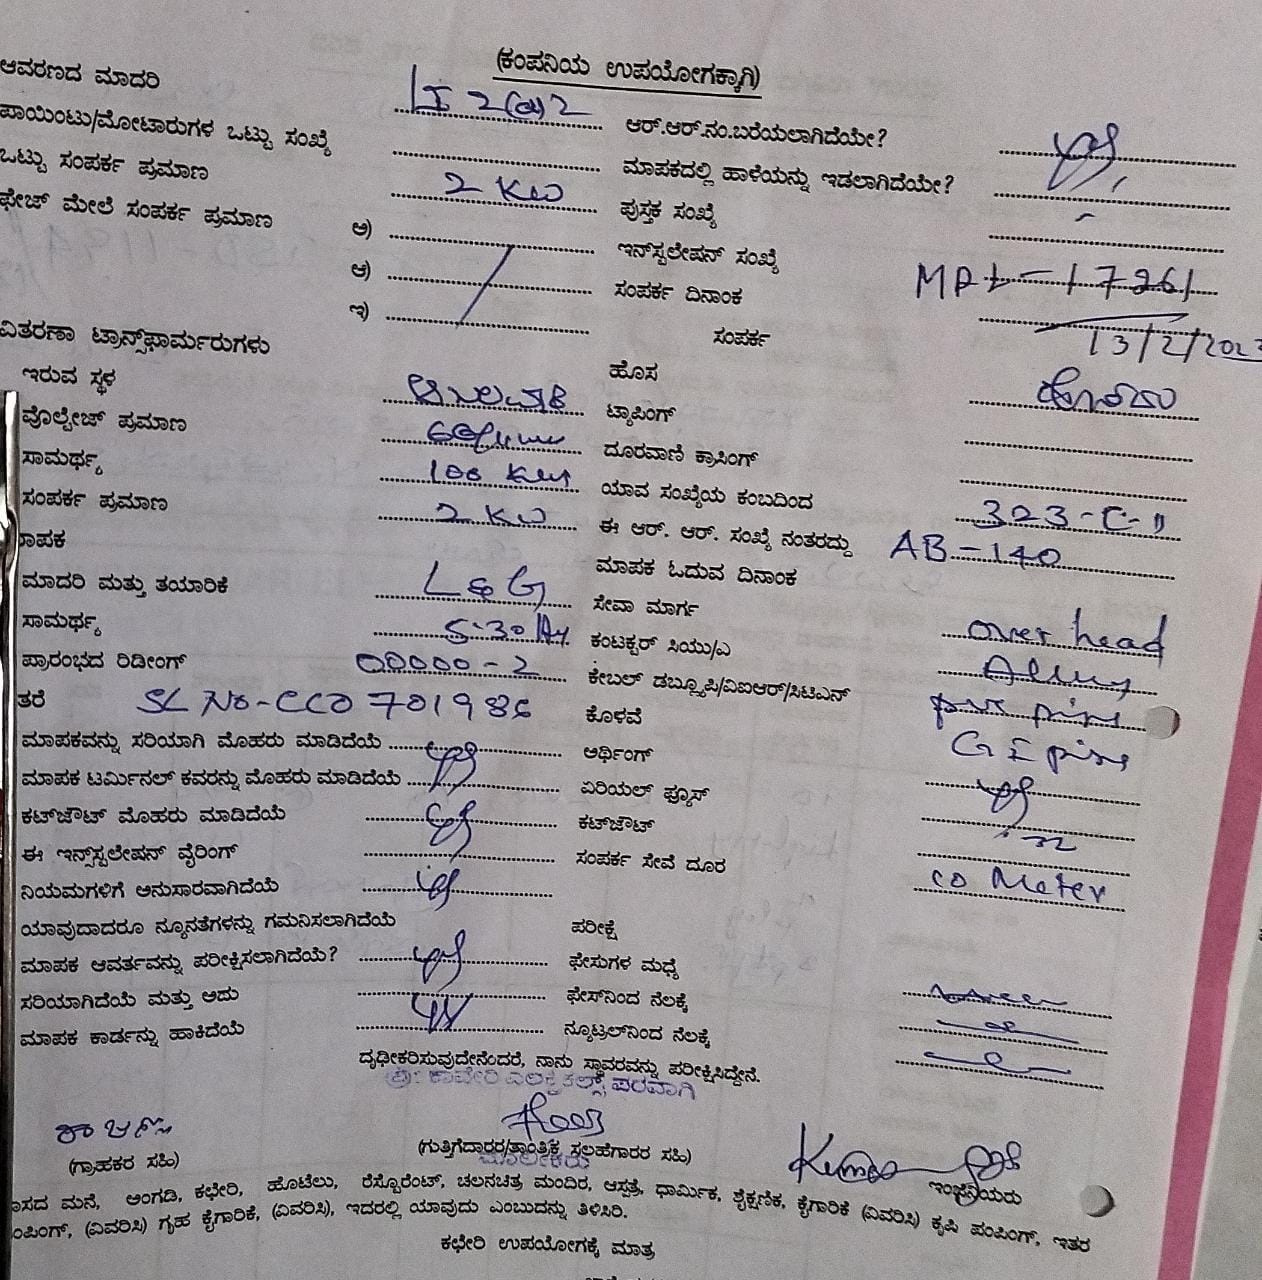 (ಕಂಪನಿಯ ಉಪಯೋಗಕ್ಕಾಗಿ)
ಆವರಣದ ಮಾದರಿ LT 2(a)2 ಆರ್.ಆರ್.ನಂ.ಬರೆಯಲಾಗಿದೆಯೇ?
ಪಾಯಿಂಟು/ಮೋಟಾರುಗಳ ಒಟ್ಟು ಸಂಖ್ಯೆ ಮಾಪಕದಲ್ಲಿ ಹಾಳೆಯನ್ನು ಇಡಲಾಗಿದೆಯೇ?
ಒಟ್ಟು ಸಂಪರ್ಕ ಪ್ರಮಾಣ 2 KW ಪುಸ್ತಕ ಸಂಖ್ಯೆ
ಫೇಜ್ ಮೇಲೆ ಸಂಪರ್ಕ ಪ್ರಮಾಣ ಅ) ಇನ್‌ಸ್ಟಲೇಷನ್ ಸಂಖ್ಯೆ 17261
ಆ) ಸಂಪರ್ಕ ದಿನಾಂಕ 13/2/202
ಇ) ಸಂಪರ್ಕ
ವಿತರಣಾ ಟ್ರಾನ್ಸ್‌ಫಾರ್ಮರುಗಳು
ಇರುವ ಸ್ಥಳ ಹೊಸ
ವೊಲ್ಟೇಜ್ ಪ್ರಮಾಣ ಟ್ಯಾಪಿಂಗ್
ಸಾಮರ್ಥ್ಯ 100 ದೂರವಾಣಿ ಕ್ರಾಸಿಂಗ್
ಸಂಪರ್ಕ ಪ್ರಮಾಣ 2 KW ಯಾವ ಸಂಖ್ಯೆಯ ಕಂಬದಿಂದ 323-C-11
ಾಪಕ ಈ ಆರ್. ಆರ್. ಸಂಖ್ಯೆ ನಂತರದ್ದು AB-140
ಮಾದರಿ ಮತ್ತು ತಯಾರಿಕೆ L&G ಮಾಪಕ ಓದುವ ದಿನಾಂಕ
ಸಾಮರ್ಥ್ಯ 5-30 ಸೇವಾ ಮಾರ್ಗ over head
ಪ್ರಾರಂಭದ ರಿಡೀಂಗ್ 00000-2 ಕಂಟಕ್ಟರ್ ಸಿಯು/ಎ
ತರೆ SL No-CCO701986 ಕೇಬಲ್ ಡಬ್ಲ್ಯೂಪಿ/ವಿಐಆರ್/ಸಿಟಿಎನ್
ಕೊಳವೆ
ಮಾಪಕವನ್ನು ಸರಿಯಾಗಿ ಮೊಹರು ಮಾಡಿದೆಯೆ ಅರ್ಥಿಂಗ್
ಮಾಪಕ ಟರ್ಮಿನಲ್ ಕವರನ್ನು ಮೊಹರು ಮಾಡಿದೆಯೆ ಏರಿಯಲ್ ಫ್ಯೂಸ್
ಕಟ್‌ಔಟ್ ಮೊಹರು ಮಾಡಿದೆಯೆ ಕಟ್‌ಔಟ್
ಈ ಇನ್‌ಸ್ಟಲೇಷನ್ ವೈರಿಂಗ್ ಸಂಪರ್ಕ ಸೇವೆ ದೂರ 10 Meter
ನಿಯಮಗಳಿಗೆ ಅನುಸಾರವಾಗಿದೆಯೆ
ಯಾವುದಾದರೂ ನ್ಯೂನತೆಗಳನ್ನು ಗಮನಿಸಲಾಗಿದೆಯೆ ಪರೀಕ್ಷೆ
ಮಾಪಕ ಆವರ್ತವನ್ನು ಪರೀಕ್ಷಿಸಲಾಗಿದೆಯೆ? ಫೇಸುಗಳ ಮಧ್ಯೆ
ಸರಿಯಾಗಿದೆಯೆ ಮತ್ತು ಅದು ಫೇಸ್‌ನಿಂದ ನೆಲಕ್ಕೆ
ಮಾಪಕ ಕಾರ್ಡನ್ನು ಹಾಕಿದೆಯೆ ನ್ಯೂಟ್ರಲ್‌ನಿಂದ ನೆಲಕ್ಕೆ
ದೃಢೀಕರಿಸುವುದೇನೆಂದರೆ, ನಾನು ಸ್ಥಾವರವನ್ನು ಪರೀಕ್ಷಿಸಿದ್ದೇನೆ.
ಕಾವೇರಿ ಎಲೆಕ್ಟ್ರಿಕಲ್ಸ್ ಪರವಾಗಿ
(ಗ್ರಾಹಕರ ಸಹಿ) (ಗುತ್ತಿಗೆದಾರರ/ತಾಂತ್ರಿಕ ಸಲಹೆಗಾರರ ಸಹಿ) ಇಂಜಿನಿಯರು
ಮಾಲೀಕರು
ಾಸದ ಮನೆ, ಅಂಗಡಿ, ಕಛೇರಿ, ಹೊಟೆಲು, ರೆಸ್ಟೊರೆಂಟ್, ಚಲನಚಿತ್ರ ಮಂದಿರ, ಆಸ್ಪತ್ರೆ, ಧಾರ್ಮಿಕ, ಶೈಕ್ಷಣಿಕ, ಕೈಗಾರಿಕೆ (ವಿವರಿಸಿ) ಕೃಷಿ ಪಂಪಿಂಗ್, ಇತರ
ಂಪಿಂಗ್, (ವಿವರಿಸಿ) ಗೃಹ ಕೈಗಾರಿಕೆ, (ವಿವರಿಸಿ), ಇದರಲ್ಲಿ ಯಾವುದು ಎಂಬುದನ್ನು ತಿಳಿಸಿರಿ.
ಕಛೇರಿ ಉಪಯೋಗಕ್ಕೆ ಮಾತ್ರ